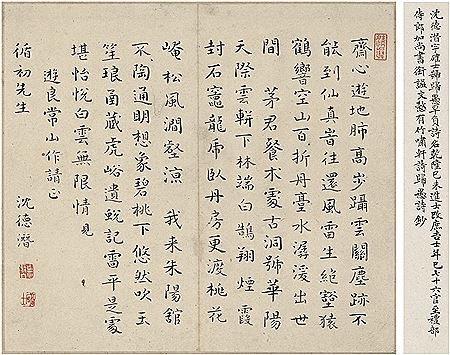 沈德潛字碻士號歸愚早負詩名乾隆己未進士改庶吉士年已七十六官至禮部
侍郎加尚書銜諡文慤有竹嘯軒詩歸愚詩鈔
齋心遊地肺高步躡雲關塵跡不
能到仙真昔往還風雷生絕壑猿
鶴響空山百折丹臺水潺湲出世
間 茅君餐朮處古洞號華陽
天際雲軿下林端白鵠翔煙霞
封石竈龍虎臥丹房更渡桃花
崦松風澗壑涼 我来朱陽館
不陶通明想象碧桃下悠然吹玉
笙琅函藏虎峪遺蛻記雷平是處
堪怡悅白雲無限情 見
遊良常山作請正
循初先生
沈德潛